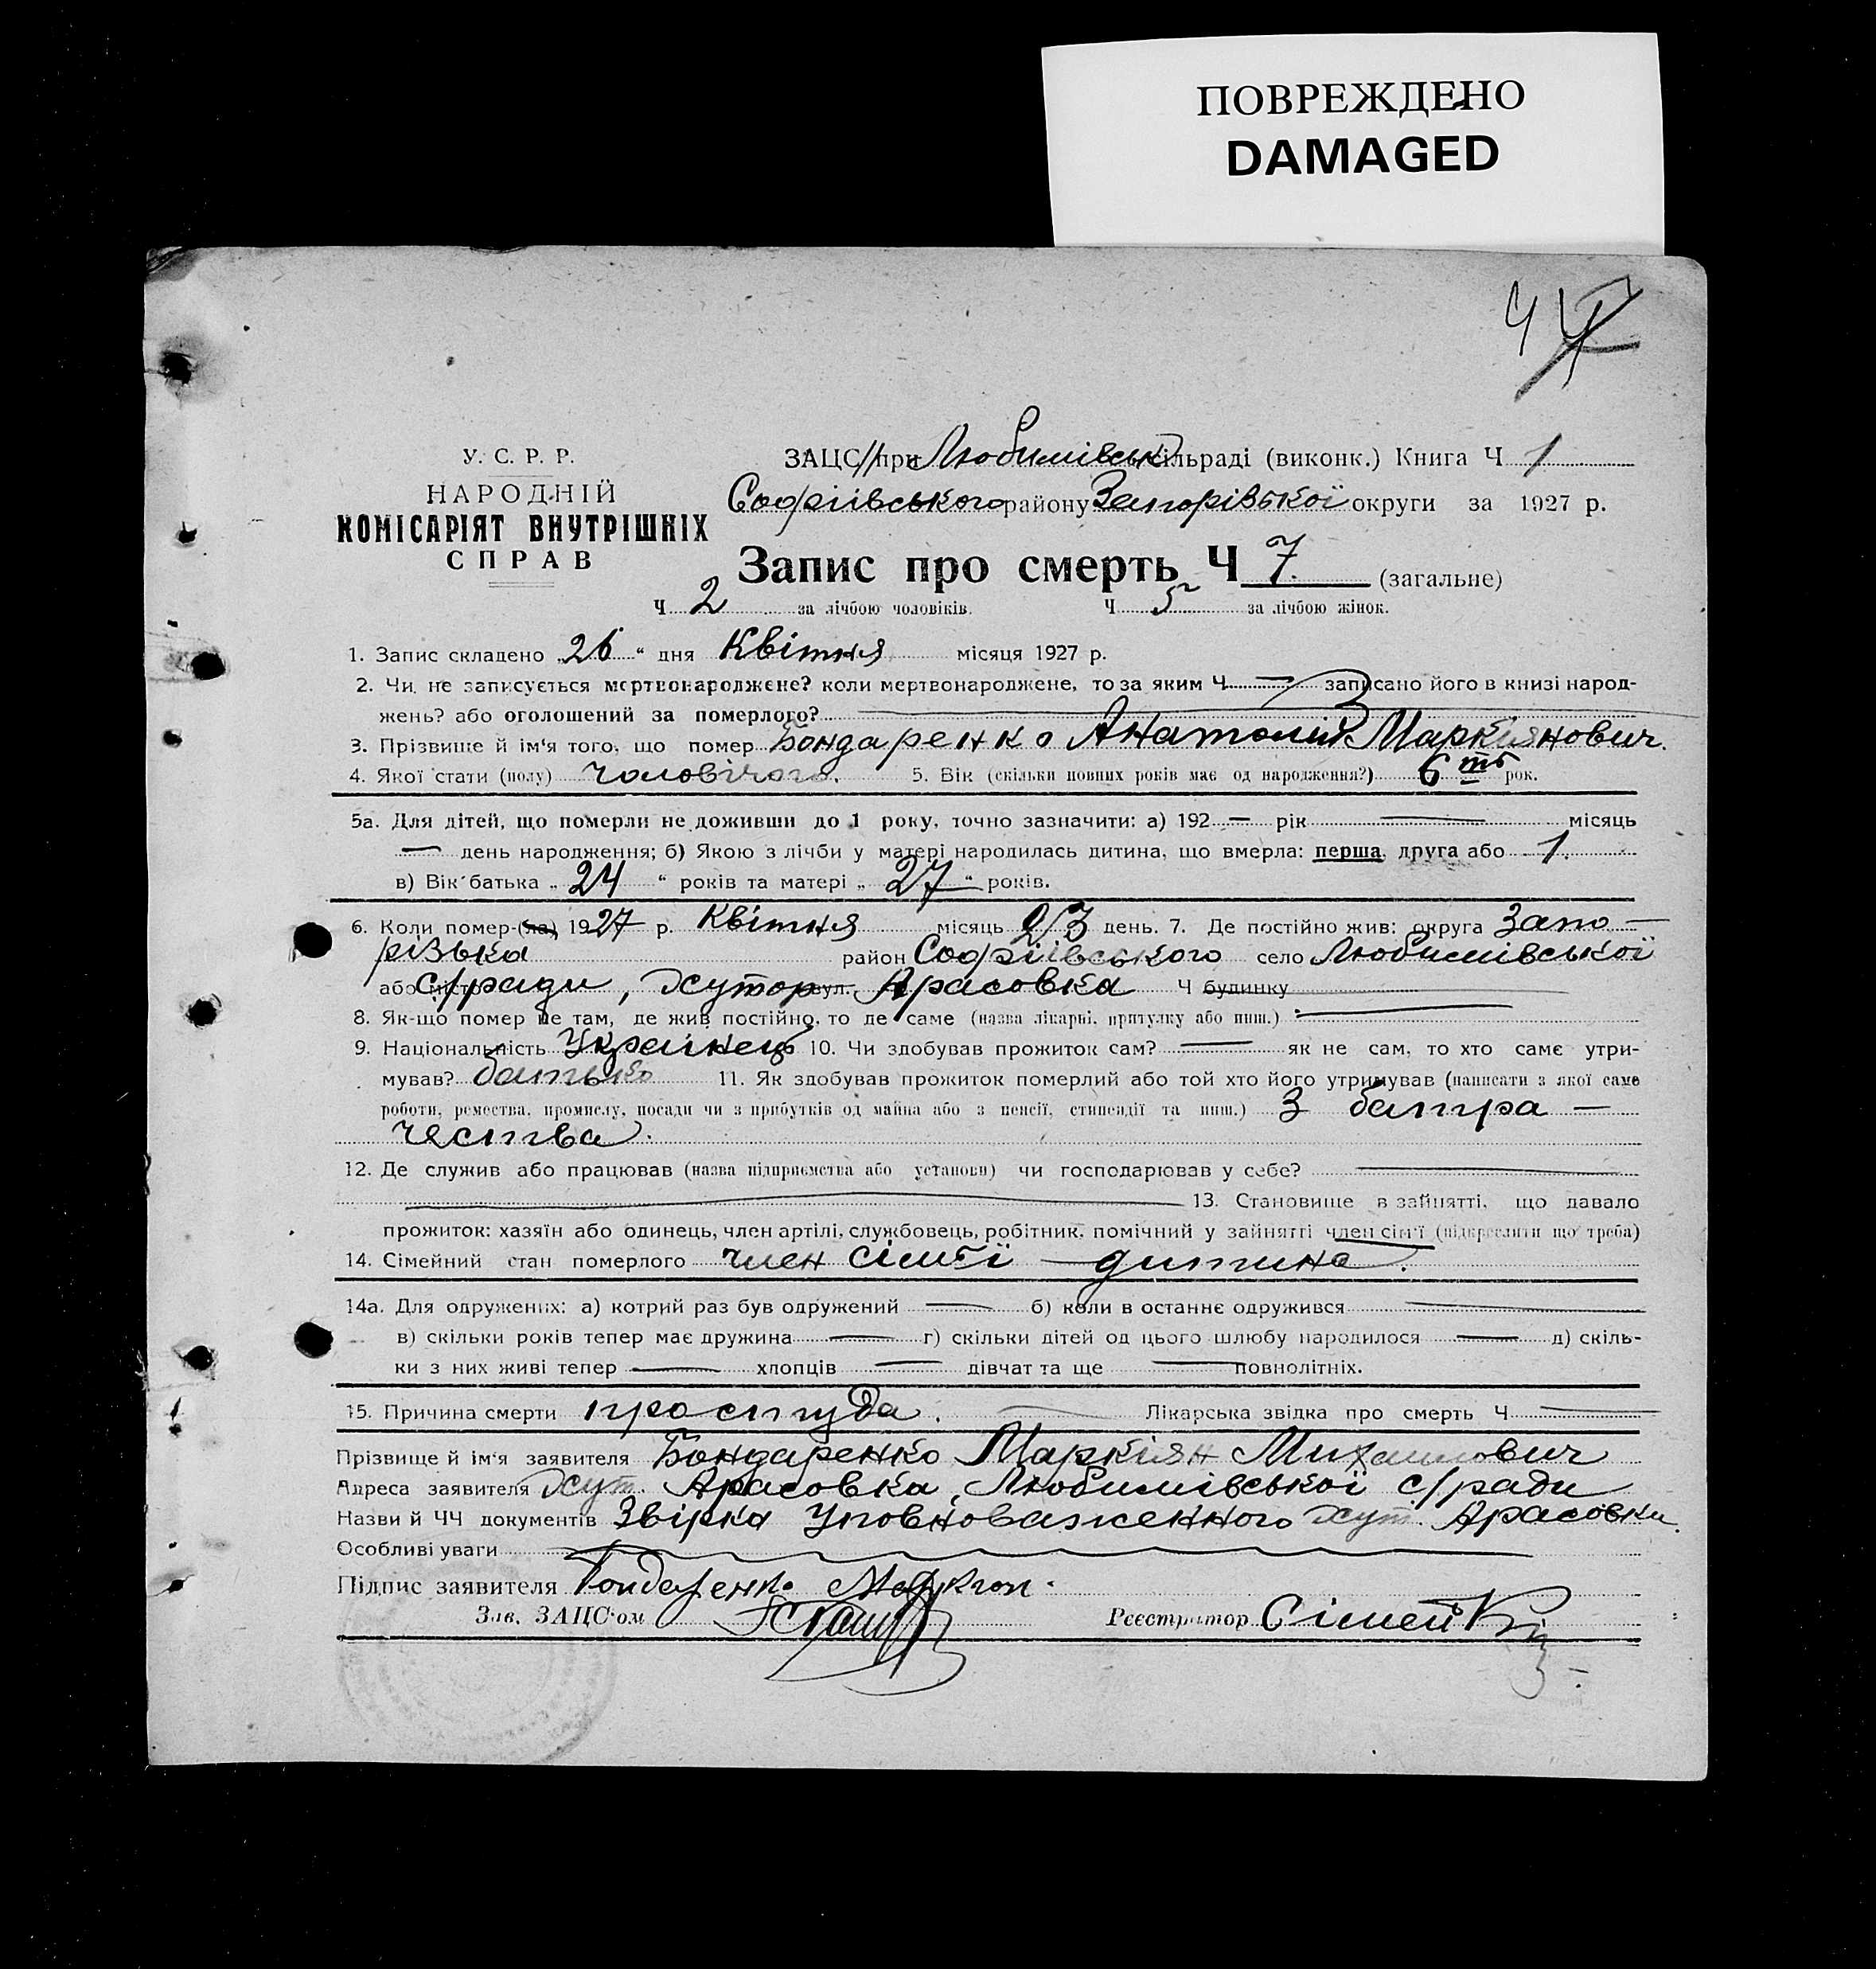 ПОВРЕЖДЕНО
DAMAGED
У. С. Р. Р.
НАРОДНІЙ
КОМІСАРІЯТ ВНУТРІШНІХ
СПРАВ
ЗАЦС при Любимівськ сільраді (виконк.) Книга Ч 1
Софіївського району Запорізької округи за 1927 р.
Запис про смерть Ч 7. (загальне)
Ч 2 за лічбою чоловіків. Ч 5 за лічбою жінок.
1. Запис складено „26“ дня Квітня місяця 1927 р.
2. Чи не записується мертвонароджене? коли мертвонароджене, то за яким Ч — записано його в книзі народ-
жень? або оголошений за померлого?
3. Прізвище й ім'я того, що помер Бондаренко Анатолій Маркіянович.
4. Якої стати (полу) чоловічого. 5. Вік (скільки повних років має од народження?) 6 ть рок.
5а. Для дітей, що померли не доживши до 1 року, точно зазначити: а) 192 — рік — місяць
— день народження; б) Якою з лічби у матері народилась дитина, що вмерла: перша, друга або 1.
в) Вік батька „24“ років та матері „27“ років.
6. Коли помер-(ла) 1927 р. Квітня місяць 23 день. 7. Де постійно жив: округа Запо—
різька район Софіївського село Любимівської
або місто с/ради, хутор вул. Арасовка Ч будинку
8. Як-що помер не там, де жив постійно, то де саме (назва лікарні, притулку або инш.) —
9. Національність Українець 10. Чи здобував прожиток сам? — як не сам, то хто саме утри-
мував? батько 11. Як здобував прожиток померлий або той хто його утримував (написати з якої саме
роботи, ремества, промислу, посади чи з прибутків од майна або з пенсії, стипендії та инш.) З батра —
чества.
12. Де служив або працював (назва підприємства або установи) чи господарював у себе? —
— 13. Становище в зайнятті, що давало
прожиток: хазяїн або одинець, член артілі, службовець, робітник, помічний у зайнятті член сім'ї (підкреслити що треба)
14. Сімейний стан померлого член сімьї — дитина.
14а. Для одружених: а) котрий раз був одружений — б) коли в останнє одружився —
в) скільки років тепер має дружина — г) скільки дітей од цього шлюбу народилося — д) скіль-
ки з них живі тепер — хлопців — дівчат та ще — повнолітніх.
15. Причина смерти простуда. Лікарська звідка про смерть Ч —
Прізвище й ім'я заявителя Бондаренко Маркіян Михаилович
Адреса заявителя хут. Арасовка, Любимівської с/ради
Назви й ЧЧ документів Звірка Уповноваженного хут. Арасовки.
Особливі уваги
Підпис заявителя Бондаренко Маркіян.
Зав. ЗАЦС'ом Реєстратор